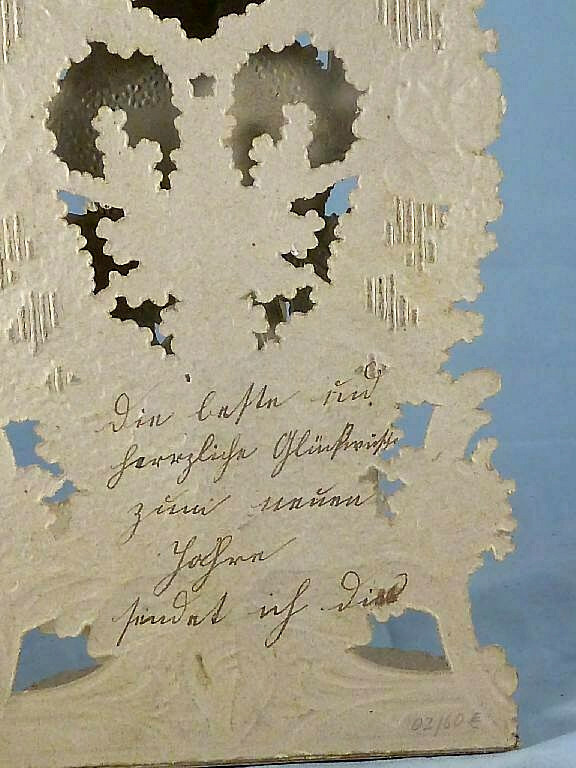 Die beste und
herzliche Glückwünsche
zum neuen
Jahre
sendet ich die